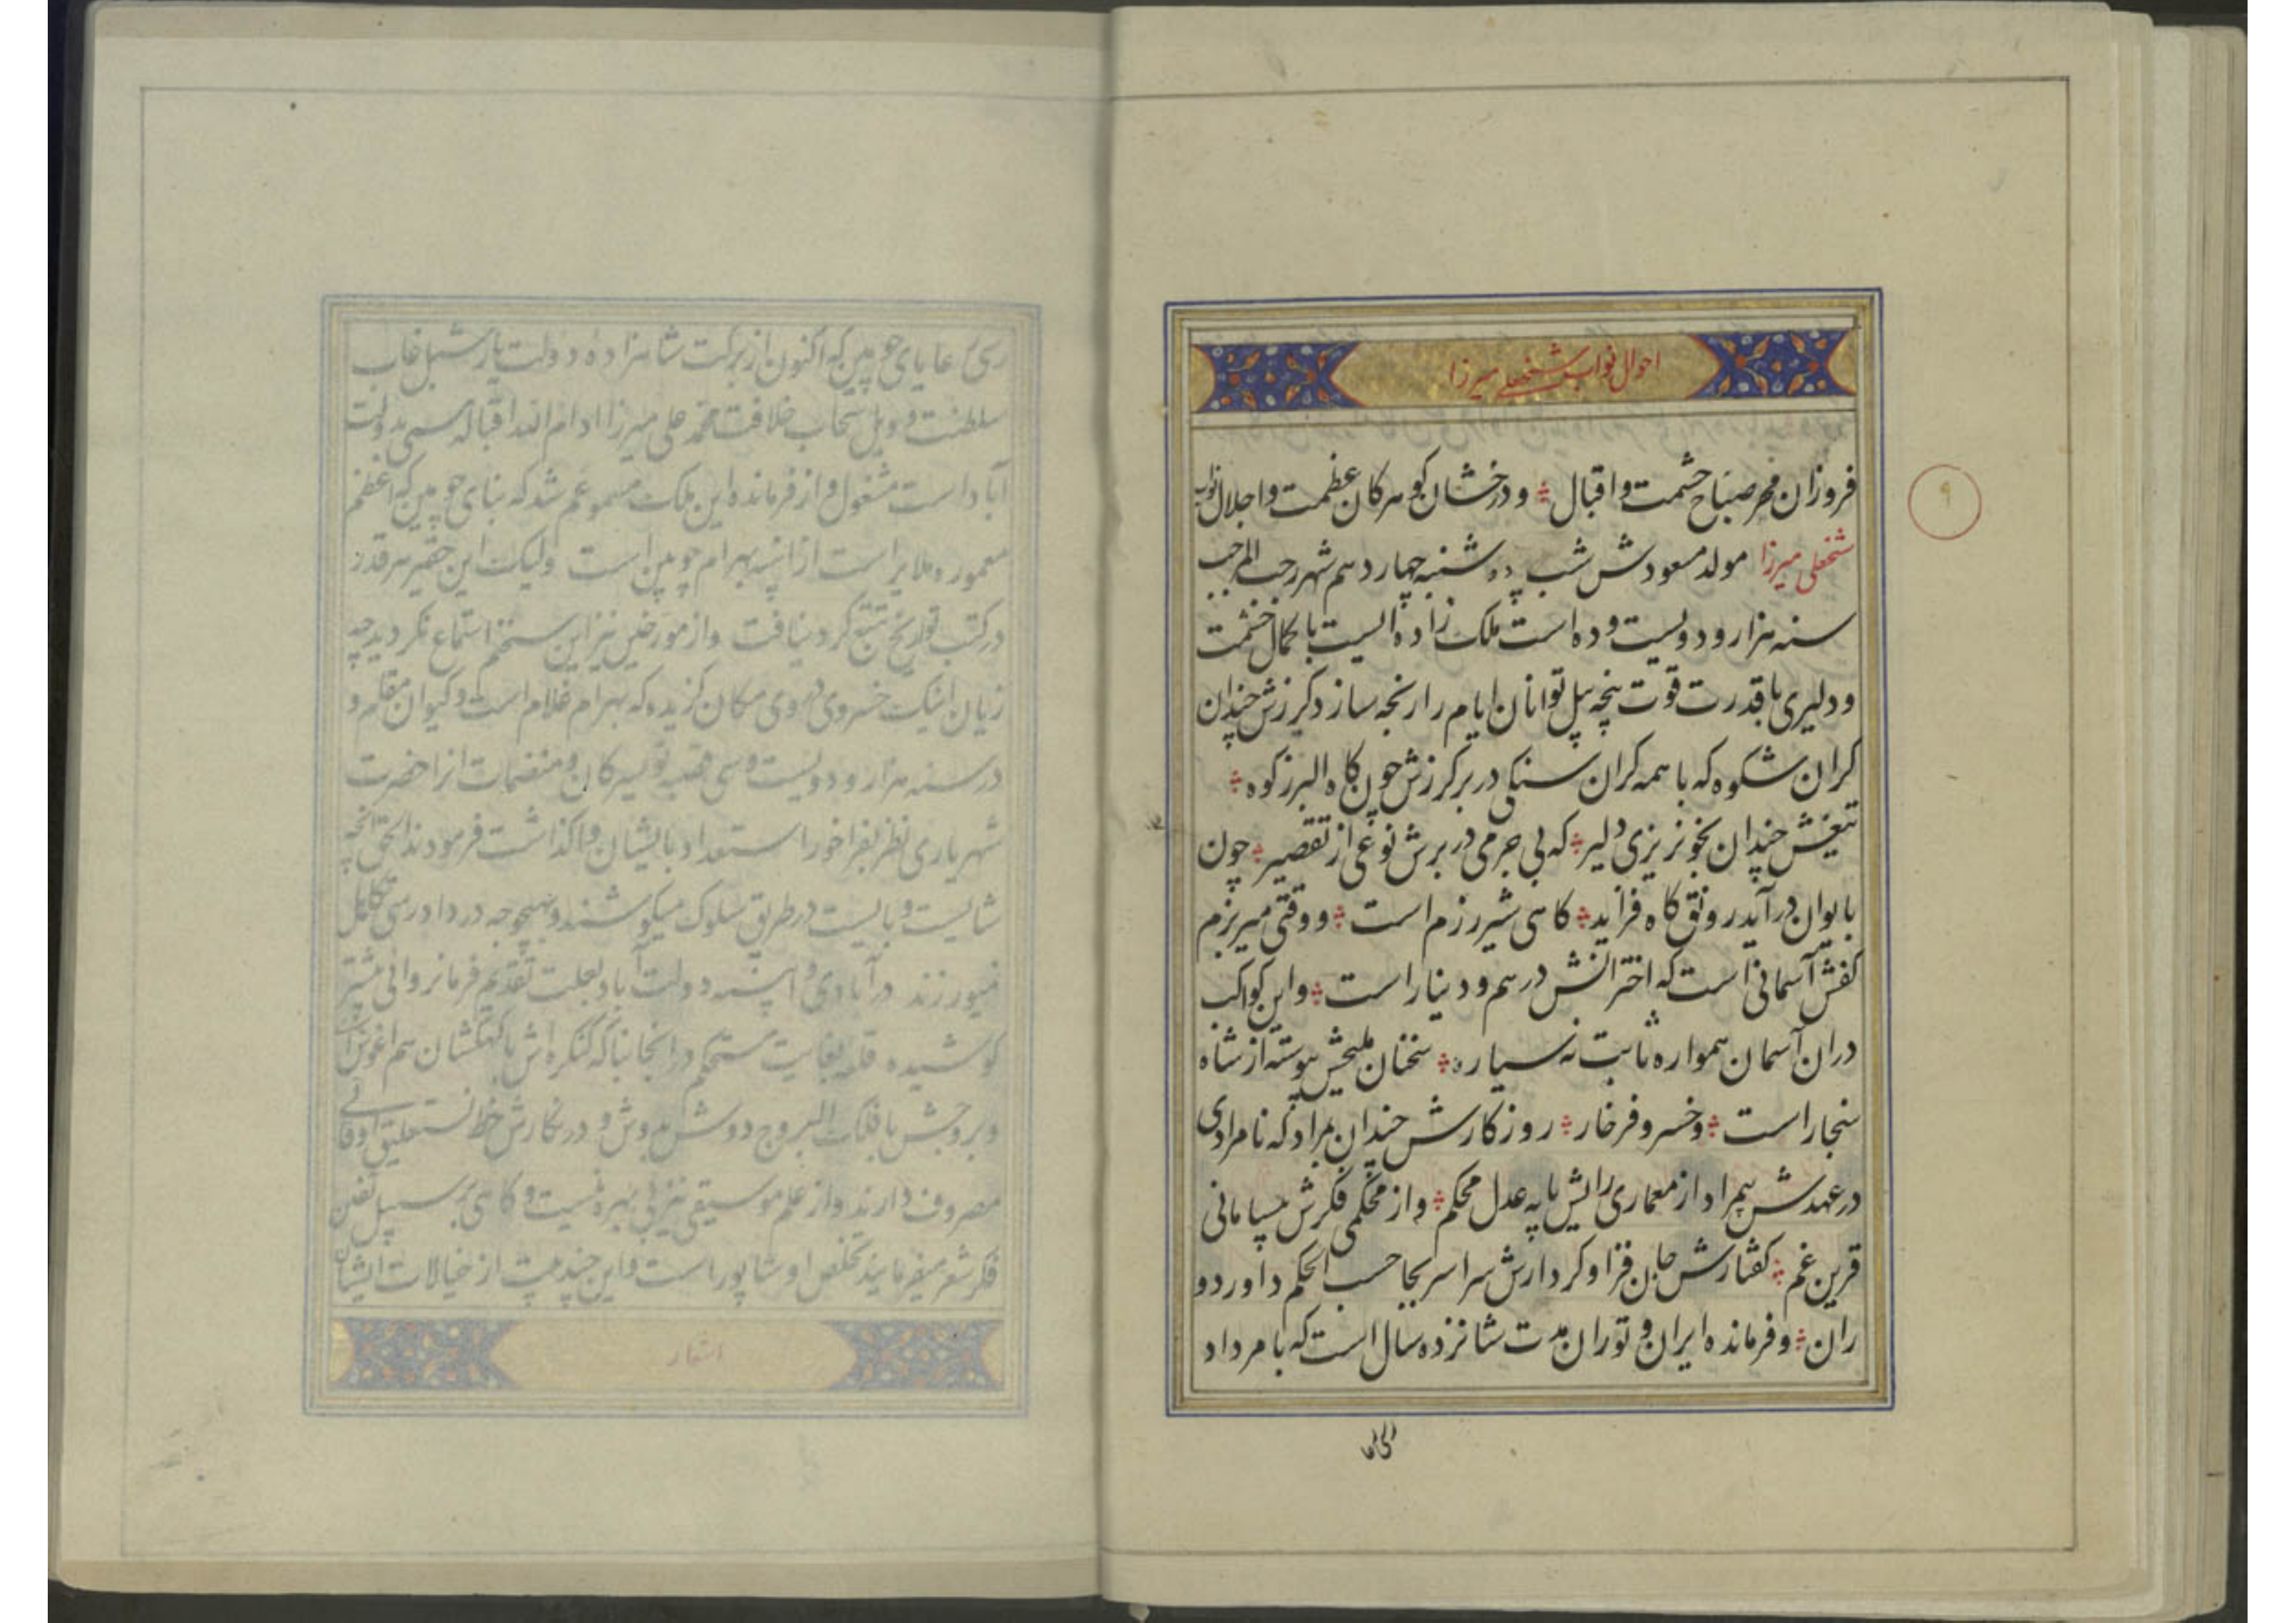 احوال نواب شیخعلی میرزا
۹
فروزان مهر صباح حشمت و اقبال ؞ و درخشان کوهر کان عظمت و اجلال نواب
شیخعلی میرزا مولد مسعودش شب دوشنبه چهاردهم شهر رجب المرجب
سنه هزار و دویست و ده است ملک زاده ایست با کمال حشمت
و دلیری با قدرت قوت پنجه پیل توانان ایام را رنجه سازد کرزش چندان
کران شکوه که با همه کران سنکی در بر کرزش چون کاه البرز کوه ؞
تیغش چندان بخونریزی دلیر ؞ که بی جرمی در برش نوعی از تقصیر ؞ چون
بایوان درآید رونق کاه فزاید ؞ کاهی شیر رزم است ؞ و وقتی میر بزم
کفش آسمانی است که اخترانش درهم و دینار است ؞ و این کواکب
دران آسمان همواره ثابت نه سیاره ؞ سخنان ملیحش پیوسته از شاه
سنجار است ؞ و خسرو فرخار ؞ روزکارش چندان بمراد که نامرادی
در عهدش بیمراد از معماری رایش پایه عدل محکم ؞ و از محکمی فکرش
قرین غم ؞ کفتارش جان فزا و کردارش سراسر بجا حسب الحکم داور دو
ران ؞ و فرمانده ایران و توران مدت شانزده سال است که بامر داد
رعایای چوپین که اکنون از برکت شاهزاده دولت یار شبل غاب
سلطنت و وبل سحاب خلافت محمد علی میرزا ادام الله اقباله مسمی بدولت
آباد است مشغول و از فرمانده این ملک مسموعم شد که بنای چوپین که اعظم
معموره ملایر است از ابنیه بهرام چوبین است ولیکن این حقیر هر قدر
در کتب تواریخ تتبع کرد نیافت و از مورخین نیز این سخنم استماع نکردید چه
زیان اینک خسروی در وی مکان کزیده که بهرام غلام است و کیوان مقام و
در سنه هزار و دویست و سی قصبه تویسرکان و منضمات انرا حضرت
شهریاری نظر بفراخور استعداد بایشان واکذاشت فرمودند الحق آنچه
شایست و بایست در طریق سلوک میکوشند و بهیچوجه در دادرسی تکاهل
نمیورزند در آبادی و ابنیه دولت آباد بعلت تقدیم فرمانروائی بیشتر
کوشیده قلعه بغایت مستحکم در انجا بنا که کنکره اش با کهکشان هم اغوش
و بروجش با فلک البروج دوش بدوش و در نکارش خط نستعلیق اوقاتی
مصروف دارند و از علم موسیقی نیز بی بهره نیست و کاهی بر سبیل تفنن
فکر شعر میفرمایند تخلص او شاپور است و این چند بیت از خیالات ایشان
اشعار